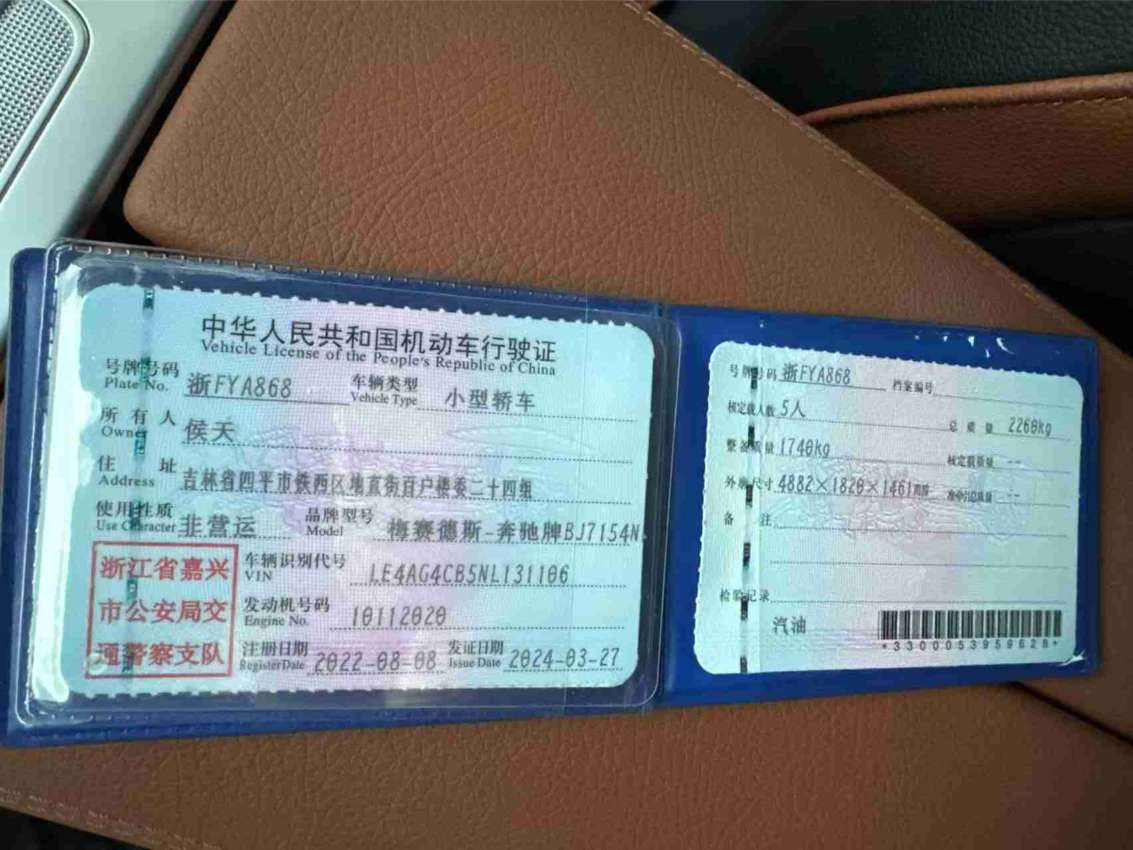 中华人民共和国机动车行驶证
Vehicle License of the People's Republic of China
号牌号码 浙FYA868 车辆类型 小型轿车
Plate No. Vehicle Type
所有人 侯天
Owner
住址 吉林省四平市铁西区地直街百户楼委二十四组
Address
使用性质 非营运 品牌型号 梅赛德斯-奔驰牌BJ7154N
Use Character Model
浙江省嘉兴
市公安局交
通警察支队
车辆识别代号 LE4AG4CB5NL131106
VIN
发动机号码 10112020
Engine No.
注册日期 2022-08-08 发证日期 2024-03-27
Register Date Issue Date
号牌号码 浙FYA868 档案编号
核定载人数 5人 总质量 2260kg
整备质量 1740kg 核定载质量 --
外廓尺寸 4882×1820×1461mm 准牵引总质量 --
备注
检验记录
汽油
*3300053959628*